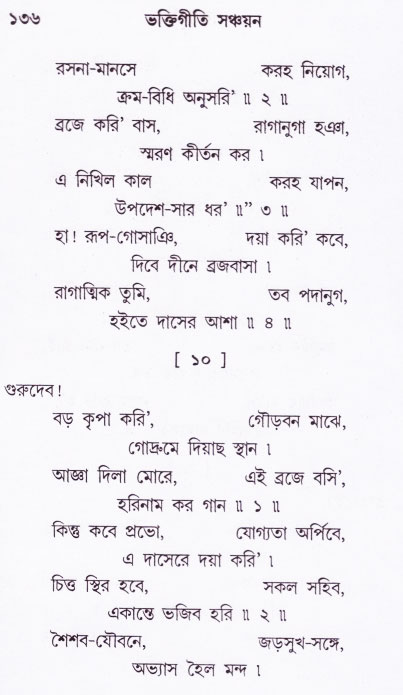 ১৩৬ ভক্তিগীতি সঞ্চয়ন
রসনা-মানসে করহ নিয়োগ,
ক্রম-বিধি অনুসরি' ॥ ২ ॥
ব্রজে করি' বাস, রাগানুগা হঞা,
স্মরণ কীর্তন কর ।
এ নিখিল কাল করহ যাপন,
উপদেশ-সার ধর' ॥” ৩ ॥
হা! রূপ-গোসাঞি, দয়া করি' কবে,
দিবে দীনে ব্রজবাসা ।
রাগাত্মিক তুমি, তব পদানুগ,
হইতে দাসের আশা ॥ ৪ ॥
[ ১০ ]
গুরুদেব!
বড় কৃপা করি', গৌড়বন মাঝে,
গোদ্রুমে দিয়াছ স্থান ।
আজ্ঞা দিলা মোরে, এই ব্রজে বসি',
হরিনাম কর গান ॥ ১ ॥
কিন্তু কবে প্রভো, যোগ্যতা অর্পিবে,
এ দাসেরে দয়া করি' ।
চিত্ত স্থির হবে, সকল সহিব,
একান্তে ভজিব হরি ॥ ২ ॥
শৈশব-যৌবনে, জড়সুখ-সঙ্গে,
অভ্যাস হৈল মন্দ ।